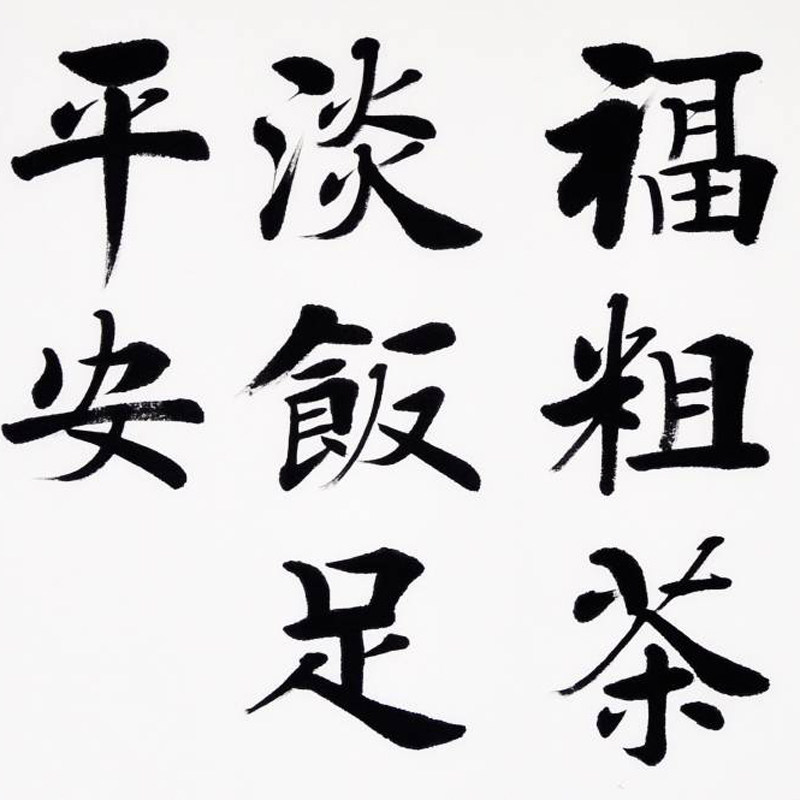 福粗茶
淡飯足
平安